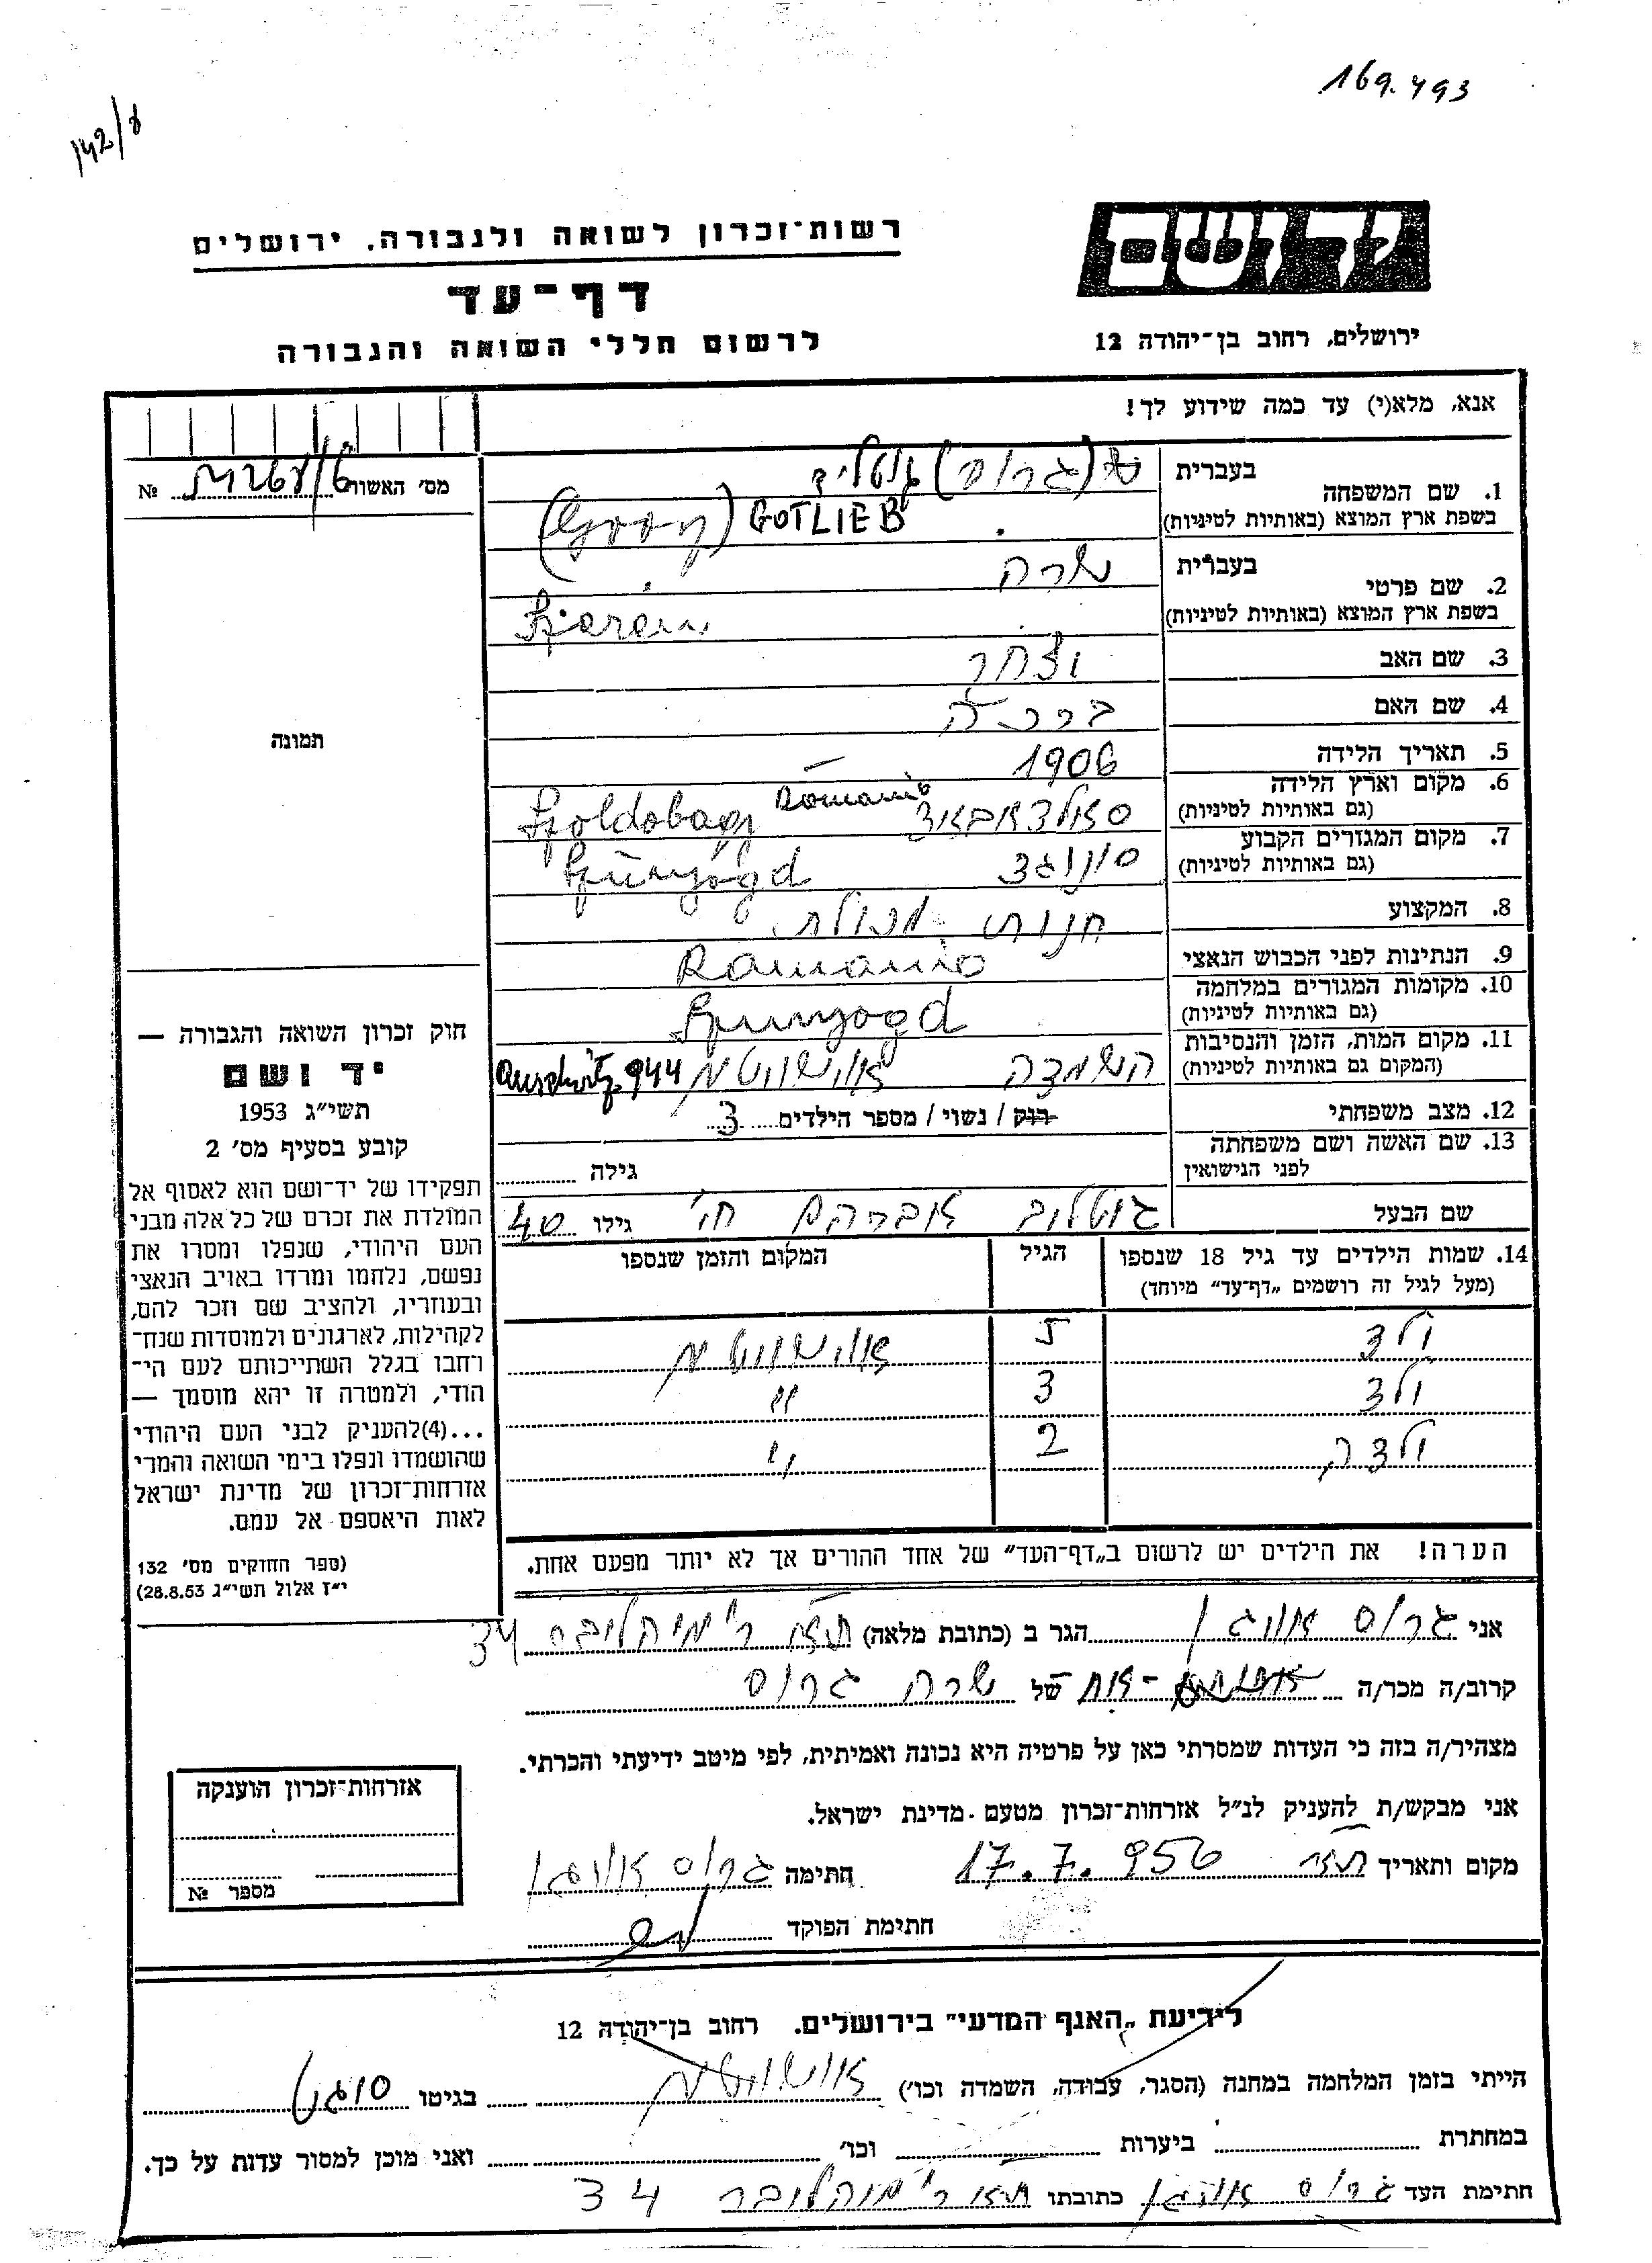 169.493
142/8
ידושם
רשות־זכרון לשואה ולגבורה. ירושלים
דף־עד
לרשום חללי השואה והגבורה
ירושלים, רחוב בן־יהודה 12
אנא, מלא(י) עד כמה שידוע לך!
מס׳ האשור №
1. שם המשפחה
בעברית (גרוס) גוטליב
בשפת ארץ המוצא (באותיות לטיניות) GOTLIEB
2. שם פרטי
בעברית שרה
בשפת ארץ המוצא (באותיות לטיניות) Szerén
3. שם האב יצחק
4. שם האם
5. תאריך הלידה 1906
6. מקום וארץ הלידה
(גם באותיות לטיניות) Szoldobagy Romania
7. מקום המגורים הקבוע
(גם באותיות לטיניות) Szúnyogd
8. המקצוע חנות מכולת
9. הנתינות לפני הכבוש הנאצי Romania
10. מקומות המגורים במלחמה
(גם באותיות לטיניות) Szunyogd
11. מקום המות, הזמן והנסיבות
(המקום גם באותיות לטיניות) השמדה אושוויטץ 944 Auschwitz
12. מצב משפחתי רוק / נשוי / מספר הילדים 3
13. שם האשה ושם משפחתה
לפני הנישואין גילה
שם הבעל גוטליב אברהם גילו 40
14. שמות הילדים עד גיל 18 שנספו הגיל המקום והזמן שנספו
(מעל לגיל זה רושמים „דף־עד״ מיוחד)
ילד 5 אושוויטץ
ילד 3 "
ילדה 2 "
הערה! את הילדים יש לרשום ב„דף־העד״ של אחד ההורים אך לא יותר מפעם אחת.
תמונה
חוק זכרון השואה והגבורה —
יד ושם
תשי״ג 1953
קובע בסעיף מס׳ 2
תפקידו של יד־ושם הוא לאסוף אל
המולדת את זכרם של כל אלה מבני
העם היהודי, שנפלו ומסרו את
נפשם, נלחמו ומרדו באויב הנאצי
ובעוזריו, ולהציב שם וזכר להם,
לקהילות, לארגונים ולמוסדות שנח־
רחבו בגלל השתייכותם לעם הי־
הודי, ולמטרה זו יהא מוסמך —
...(4)להעניק לבני העם היהודי
שהושמדו ונפלו בימי השואה והמרי
אזרחות־זכרון של מדינת ישראל
לאות היאספם אל עמם.
(ספר החוקים מס׳ 132
י״ז אלול תשי״ג 28.8.53)
אני גרוס הגר ב (כתובת מלאה) 34
קרוב/ה מכר/ה אח של שרה גרוס
מצהיר/ה בזה כי העדות שמסרתי כאן על פרטיה היא נכונה ואמיתית, לפי מיטב ידיעתי והכרתי.
אני מבקש/ת להעניק לנ״ל אזרחות־זכרון מטעם מדינת ישראל.
מקום ותאריך 17.7.956 חתימה גרוס
חתימת הפוקד
אזרחות־זכרון הוענקה
מספר №
לידיעת „האגף המדעי״ בירושלים. רחוב בן־יהודה 12
הייתי בזמן המלחמה במחנה (הסגר, עבודה, השמדה וכו׳) אושוויטץ בגיטו
במחתרת ביערות וכו׳ ואני מוכן למסור עדות על כך.
חתימת העד גרוס כתובתו 34